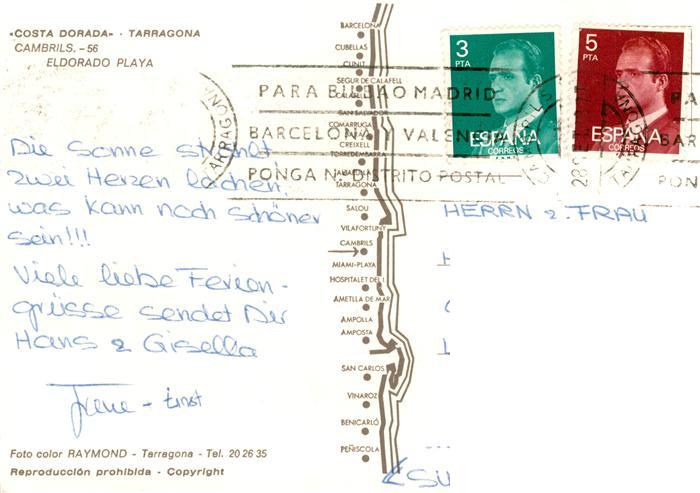 «COSTA DORADA» · TARRAGONA
CAMBRILS. - 56
ELDORADO PLAYA
Die Sonne strahlt
zwei Herzen lachen,
was kann noch schöner
sein!!!
Viele liebe Ferien-
grüsse sendet Dir
Hans & Gisella
Irene - Ernst
Foto color RAYMOND - Tarragona - Tel. 20 26 35
Reproducción prohibida - Copyright
BARCELONA
CUBELLAS
CUNIT
SEGUR DE CALAFELL
CALAFELL
SAN SALVADOR
COMARRUGA
CREIXELL
TORREDEMBARRA
TARRAGONA
SALOU
VILAFORTUNY
CAMBRILS
MIAMI-PLAYA
HOSPITALET DEL I.
AMETLLA DE MAR
AMPOLLA
AMPOSTA
SAN CARLOS
VINAROZ
BENICARLÓ
PEÑISCOLA
PARA BILBAO MADRID
BARCELONA Y VALENCIA
PONGA Nº DISTRITO POSTAL
3
PTA
ESPAÑA
CORREOS
5
PTA
ESPAÑA
CORREOS
TARRAGONA
PA
BAR
PON
HERRN & FRAU
SU